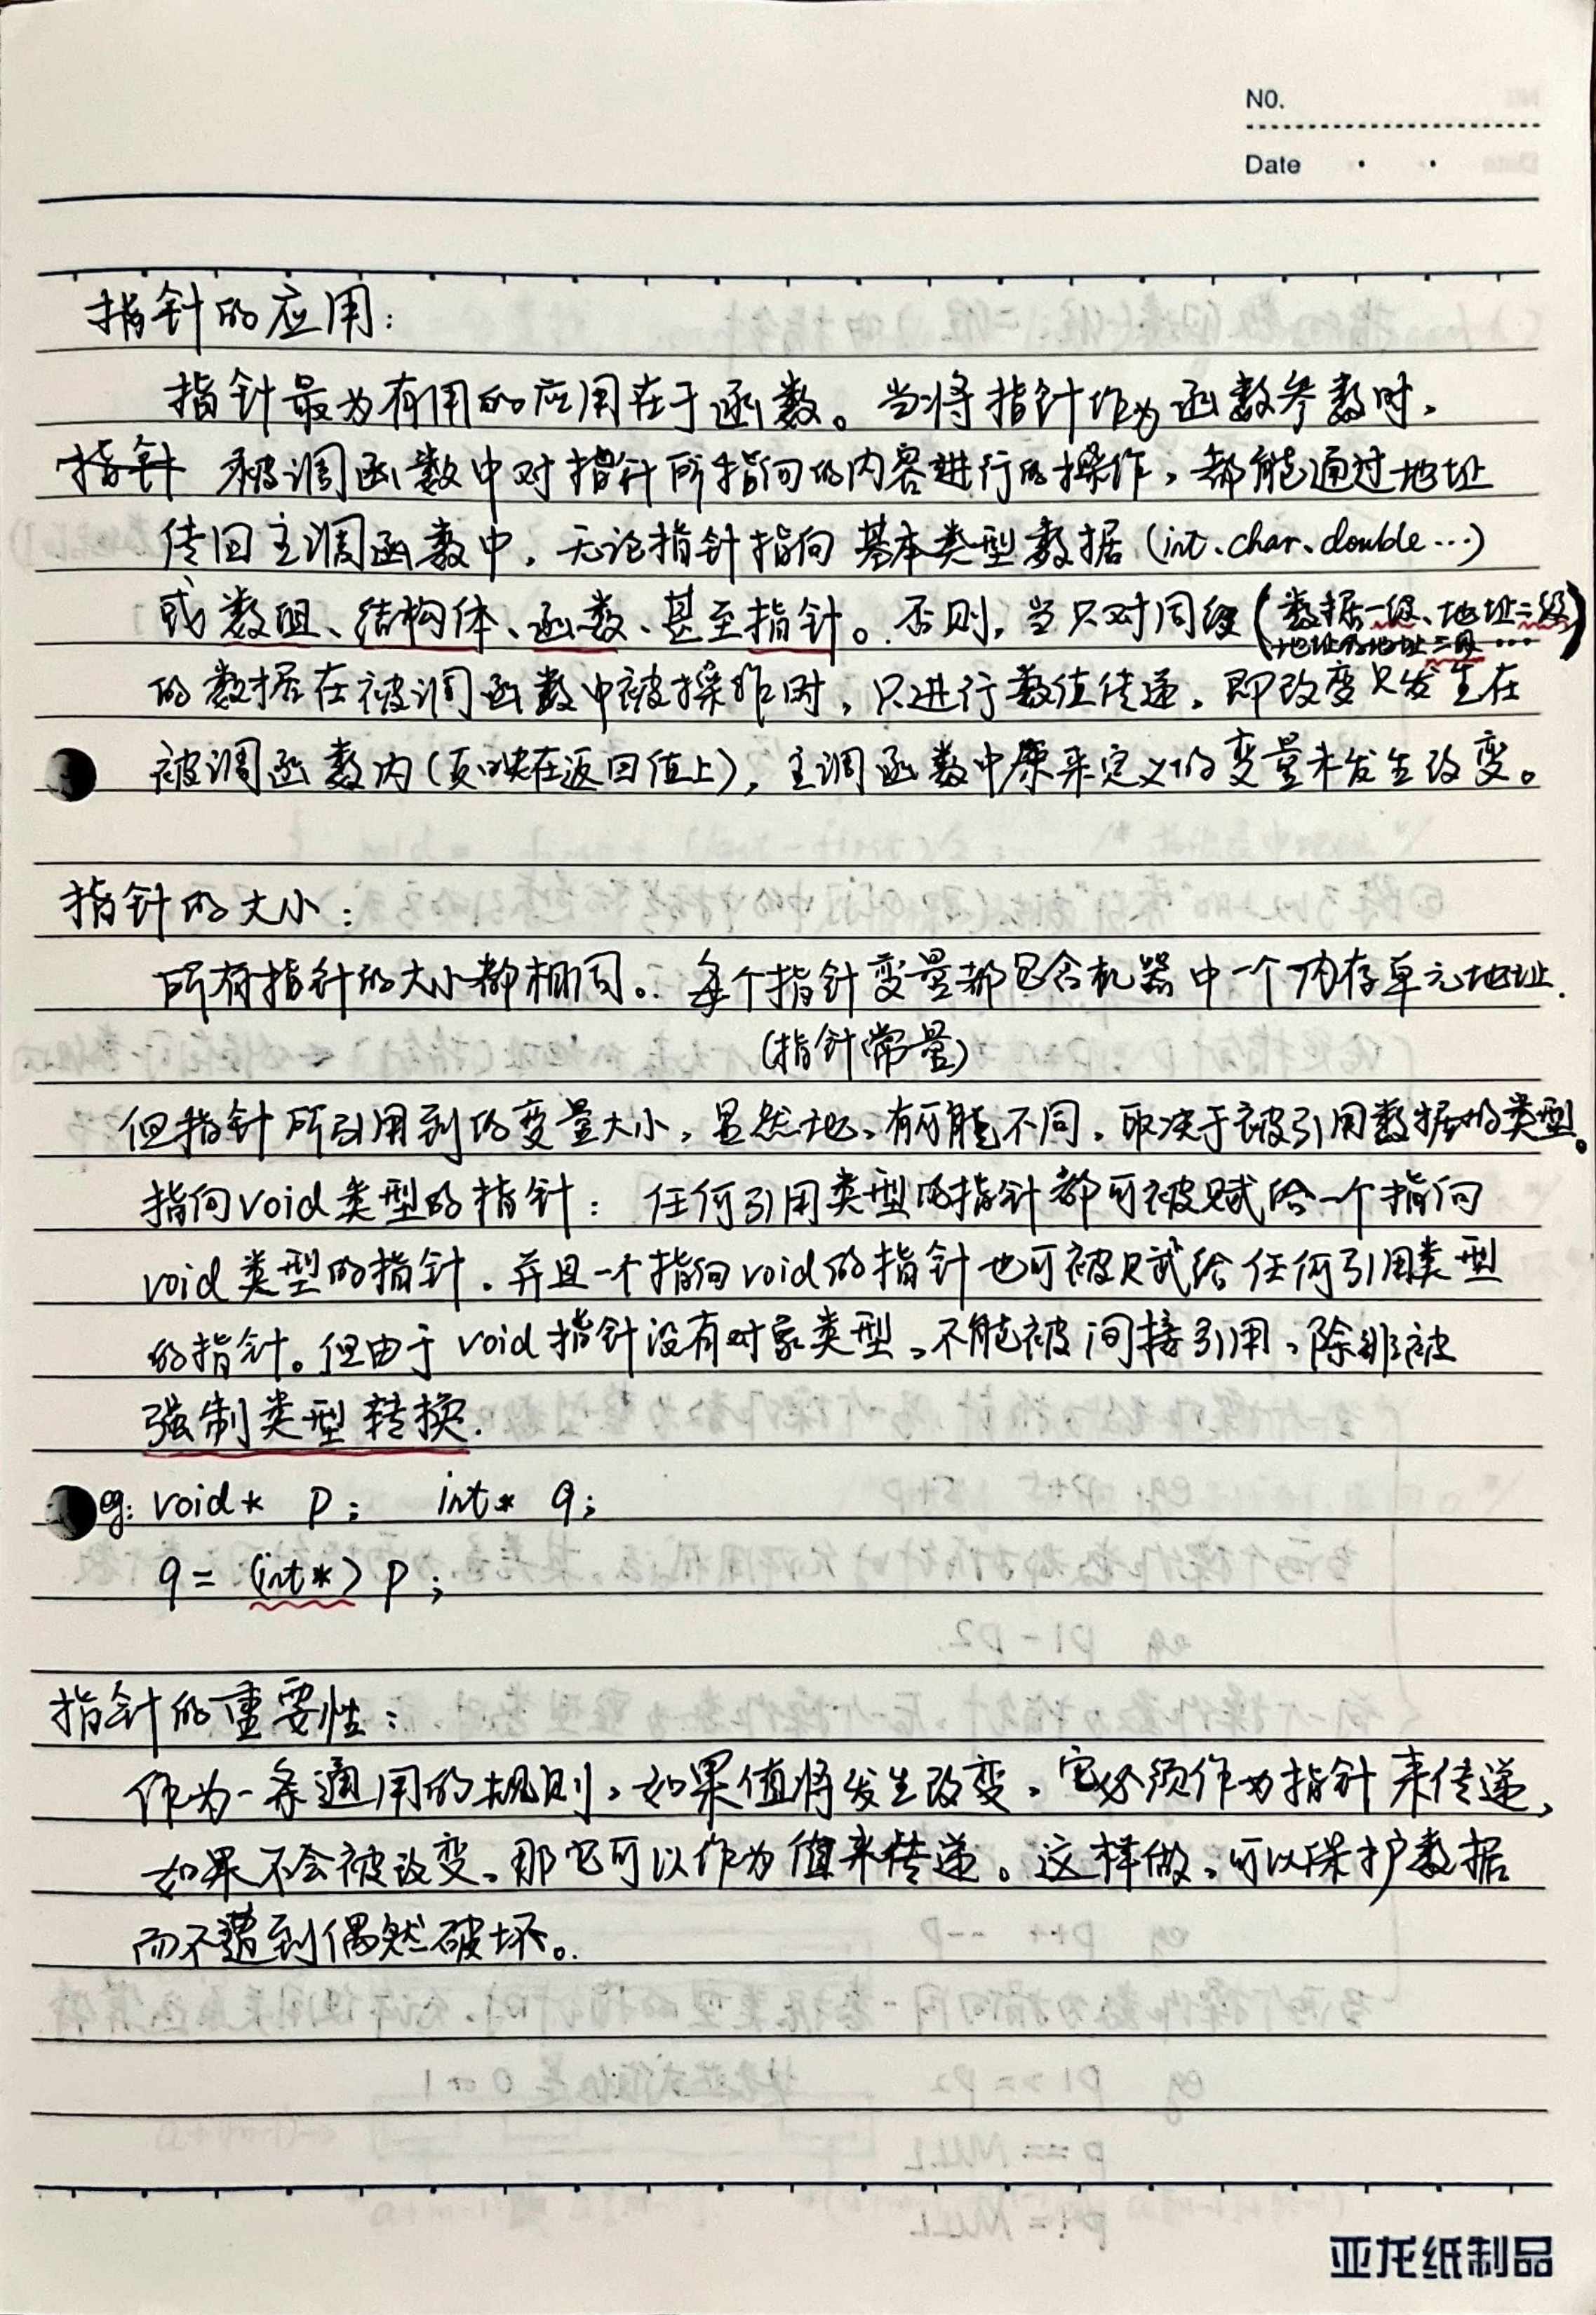 NO.
Date
指针的应用：
指针最为有用的应用在于函数。当将指针作为函数参数时，
指针 被调函数中对指针所指向的内容进行的操作，都能通过地址
传回主调函数中，无论指针指向基本类型数据（int、char、double…）
或数组、结构体、函数、甚至指针。否则，当只对同级（数据一级、地址二级
地址的地址三级…）
的数据在被调函数中被操作时，只进行数值传递，即改变只发生在
被调函数内（反映在返回值上），主调函数中原来定义的变量未发生改变。
指针的大小：
所有指针的大小都相同。每个指针变量都包含机器中一个内存单元地址.
（指针常量）
但指针所引用到的变量大小，显然地，有可能不同，取决于被引用数据的类型。
指向void类型的指针：任何引用类型的指针都可被赋给一个指向
void类型的指针，并且一个指向void的指针也可被赋给任何引用类型
的指针。但由于void指针没有对象类型，不能被间接引用，除非被
强制类型转换.
eg: void* p; int* q;
q = (int*) p;
指针的重要性：
作为一条通用的规则，如果值将发生改变，它必须作为指针来传递，
如果不会被改变，那它可以作为值来传递。这样做，可以保护数据
而不遭到偶然破坏。
亚龙纸制品